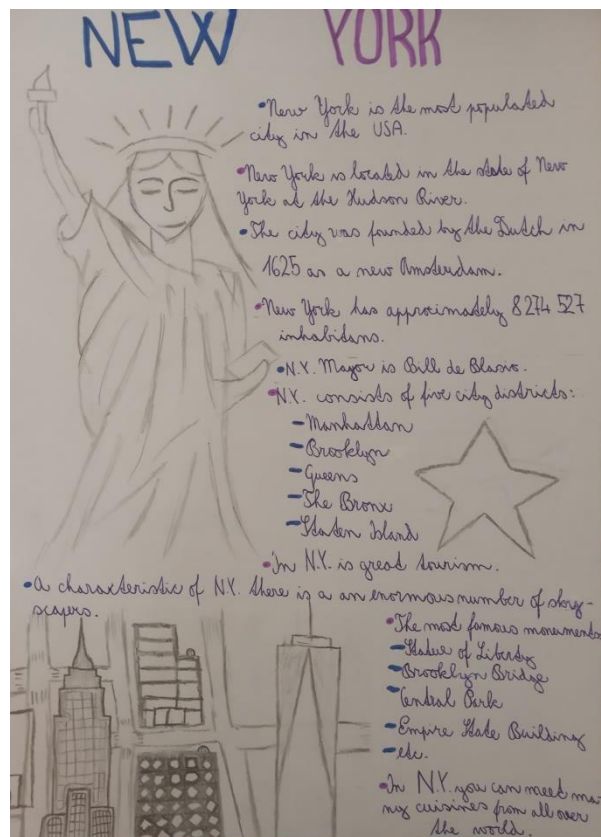 NEW YORK
•New York is the most populated
city in the USA.
•New York is located in the state of New
York at the Hudson River.
•The city was founded by the Dutch in
1625 as a new Amsterdam.
•New York has approximately 8 274 527
inhabitans.
•N.Y. Mayor is Bill de Blasio.
•N.Y. consists of five city districts:
–Manhattan
–Brooklyn
–Queens
–The Bronx
–Staten Island
•In N.Y. is great tourism.
•A characteristic of N.Y. there is a an enormous number of skry-
scapers.
•The most famous monuments
–Statue of Liberty
–Brooklyn Bridge
–Central Park
–Empire State Building
–etc.
•In N.Y. you can meet ma-
ny cuisines from all over
the world.